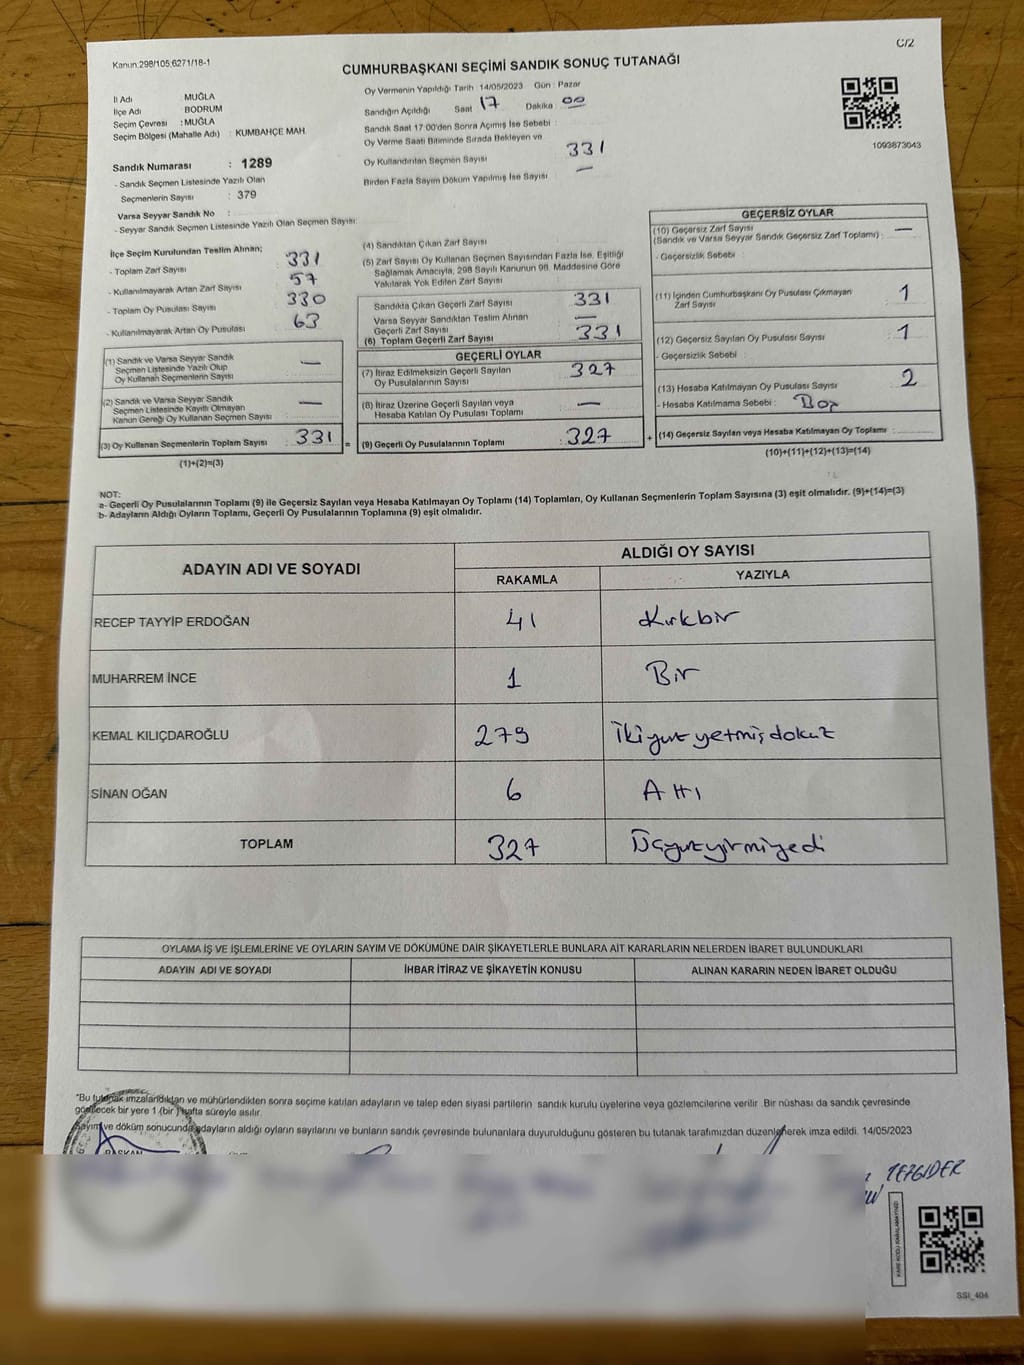 C/2
Kanun:298/105;6271/18-1
CUMHURBAŞKANI SEÇİMİ SANDIK SONUÇ TUTANAĞI
1093873043
İl Adı MUĞLA
İlçe Adı BODRUM
Seçim Çevresi : MUĞLA
Seçim Bölgesi (Mahalle Adı) : KUMBAHÇE MAH.
Sandık Numarası : 1289
- Sandık Seçmen Listesinde Yazılı Olan
Seçmenlerin Sayısı : 379
Varsa Seyyar Sandık No :
- Seyyar Sandık Seçmen Listesinde Yazılı Olan Seçmen Sayısı:
Oy Vermenin Yapıldığı Tarih 14/05/2023 Gün : Pazar
Sandığın Açıldığı Saat 17 Dakika 00
Sandık Saat 17:00'den Sonra Açımış İse Sebebi :
Oy Verme Saati Bitiminde Sırada Bekleyen ve
Oy Kullandırılan Seçmen Sayısı 331
Birden Fazla Sayım Döküm Yapılmış İse Sayısı : —
İlçe Seçim Kurulundan Teslim Alınan;
- Toplam Zarf Sayısı 331
- Kullanılmayarak Artan Zarf Sayısı 57
- Toplam Oy Pusulası Sayısı 330
- Kullanılmayarak Artan Oy Pusulası 63
(1) Sandık ve Varsa Seyyar Sandık
Seçmen Listesinde Yazılı Olup
Oy Kullanan Seçmenlerin Sayısı —
(2) Sandık ve Varsa Seyyar Sandık
Seçmen Listesinde Kayıtlı Olmayan
Kanun Gereği Oy Kullanan Seçmen Sayısı —
(3) Oy Kullanan Seçmenlerin Toplam Sayısı : 331 =
(1)+(2)=(3)
(4) Sandıktan Çıkan Zarf Sayısı
(5) Zarf Sayısı Oy Kullanan Seçmen Sayısından Fazla İse, Eşitliği
Sağlamak Amacıyla, 298 Sayılı Kanunun 98. Maddesine Göre
Yakılarak Yok Edilen Zarf Sayısı :
Sandıkta Çıkan Geçerli Zarf Sayısı 331
Varsa Seyyar Sandıktan Teslim Alınan
Geçerli Zarf Sayısı —
(6) Toplam Geçerli Zarf Sayısı 331
GEÇERLİ OYLAR
(7) İtiraz Edilmeksizin Geçerli Sayılan
Oy Pusulalarının Sayısı 327
(8) İtiraz Üzerine Geçerli Sayılan veya
Hesaba Katılan Oy Pusulası Toplamı —
(9) Geçerli Oy Pusulalarının Toplamı 327 +
GEÇERSİZ OYLAR
(10) Geçersiz Zarf Sayısı
(Sandık ve Varsa Seyyar Sandık Geçersiz Zarf Toplamı) : —
- Geçersizlik Sebebi
(11) İçinden Cumhurbaşkanı Oy Pusulası Çıkmayan
Zarf Sayısı 1
(12) Geçersiz Sayılan Oy Pusulası Sayısı 1
- Geçersizlik Sebebi :
(13) Hesaba Katılmayan Oy Pusulası Sayısı 2
- Hesaba Katılmama Sebebi : Boş
(14) Geçersiz Sayılan veya Hesaba Katılmayan Oy Toplamı
(10)+(11)+(12)+(13)=(14)
NOT:
a- Geçerli Oy Pusulalarının Toplamı (9) ile Geçersiz Sayılan veya Hesaba Katılmayan Oy Toplamı (14) Toplamları, Oy Kullanan Seçmenlerin Toplam Sayısına (3) eşit olmalıdır. (9)+(14)=(3)
b- Adayların Aldığı Oyların Toplamı, Geçerli Oy Pusulalarının Toplamına (9) eşit olmalıdır.
ADAYIN ADI VE SOYADI ALDIĞI OY SAYISI
RAKAMLA YAZIYLA
RECEP TAYYİP ERDOĞAN 41 Kırkbir
MUHARREM İNCE 1 Bir
KEMAL KILIÇDAROĞLU 279 İkiyüz yetmiş dokuz
SİNAN OĞAN 6 Altı
TOPLAM 327 Üçyüzyirmiyedi
OYLAMA İŞ VE İŞLEMLERİNE VE OYLARIN SAYIM VE DÖKÜMÜNE DAİR ŞİKAYETLERLE BUNLARA AİT KARARLARIN NELERDEN İBARET BULUNDUKLARI
ADAYIN ADI VE SOYADI İHBAR İTİRAZ VE ŞİKAYETİN KONUSU ALINAN KARARIN NEDEN İBARET OLDUĞU
"Bu tutanak imzalandıktan ve mühürlendikten sonra seçime katılan adayların ve talep eden siyasi partilerin sandık kurulu üyelerine veya gözlemcilerine verilir. Bir nüshası da sandık çevresinde
görülecek bir yere 1 (bir) hafta süreyle asılır.
Sayım ve döküm sonucunda adayların aldığı oyların sayılarını ve bunların sandık çevresinde bulunanlara duyurulduğunu gösteren bu tutanak tarafımızdan düzenlenerek imza edildi. 14/05/2023
BAŞKAN
SSI_404